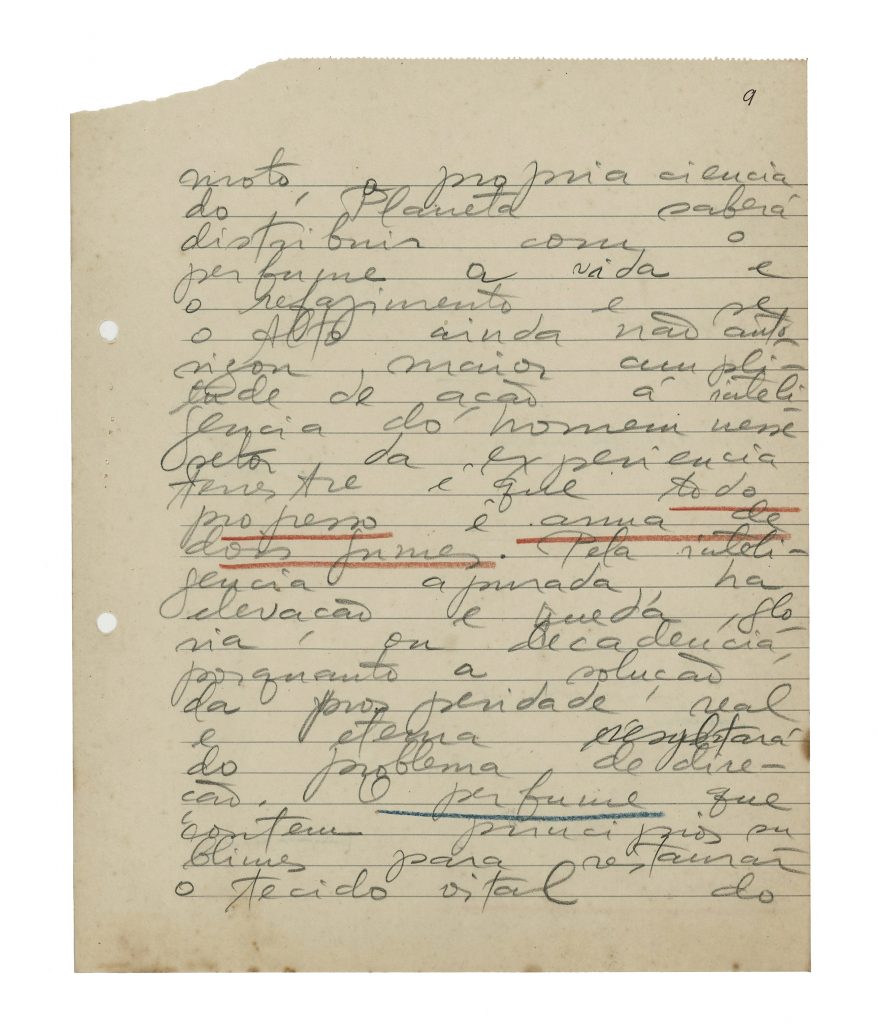 9
moto, a propria ciencia
do Planeta saberá
distribuir com o
perfume a vida e
o refazimento e se
o Alto ainda não auto
rizou maior ampli-
tude de ação á inteli
gencia do homem nesse
setor da experiencia
terrestre é que todo
progresso é arma de
dois gumes. Pela inteli-
gencia apurada, ha
elevação e queda, glo-
ria ou decadencia,
porquanto a solução
da prosperidade real
e eterna resultará
do problema de dire-
ção. O perfume que
contem principios su
blimes para restaurar
o tecido vital do